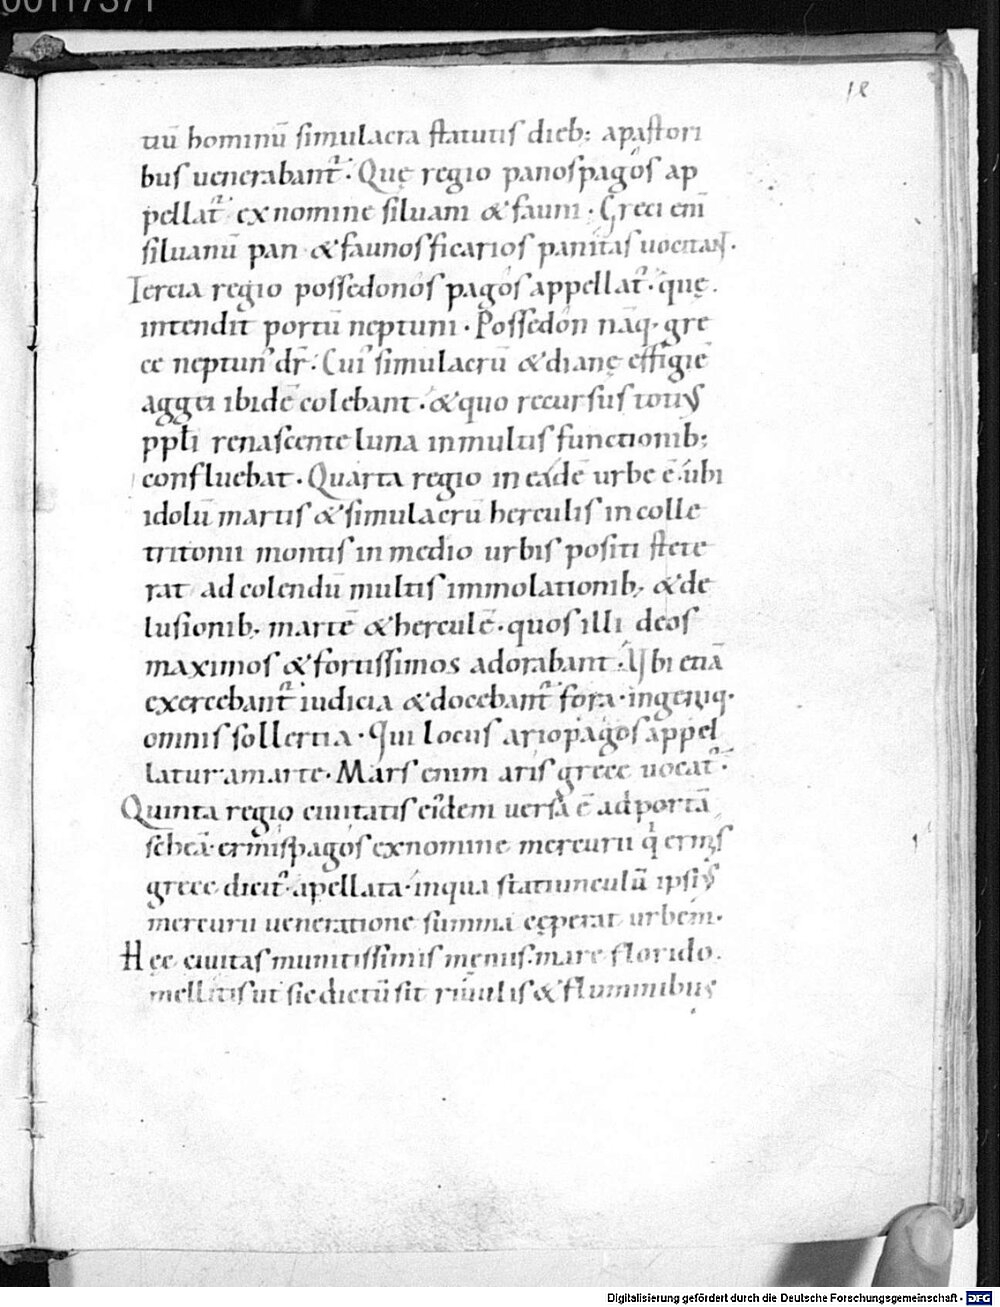 00117371
18
tiū hominū simulacra statutis dieb; apastori
bus uenerabant᷑. Quę regio panospagos ap
pellat᷑ exnomine siluam &fauni. Greci eni̅
siluanū pan &faunosficarios panitas uocitaɴᴛ.
Tercia regio possedonos pagos appellat᷑. quę.
intendit portū neptuni. Possedon nāq. gre
ce neptun᷒ dr̄. Cui᷒ simulacrū &dianę effigiē
aggei ibidē colebant. &quo recursus toti᷒
ppl̄i renascente luna inmultis functionib;
confluebat. Quarta regio in eadē urbe ē. ubi
idolū martis &simulacrū herculis incolle
tritonii montis in medio urbis positi stete
rat ad colendū multis immolationib; &de
lusionib; martē &herculē. quos illi deos
maximos &fortissimos adorabant. Vbi etiā
exercebant᷑ iudicia &docebant᷑ fora. ingeniiq.
omnis sollertia. Qui locus ariopagos appel
latur amarte. Mars enim aris grece uocat᷑.
Quinta regio ciuitatis eidem uersa ē ad portā
scheā. ermispagos exnomine mercurii qͥ ermis
grece dicit᷑. apellata. inqua statiunculā ipsi᷒
mercurii ueneratione summa cęperat urbem.
Hęc ciuitas munitissimis męniis. mare florido.
mellitis ut sic dictū sit riuulis &fluminibus
Digitalisierung gefördert durch die Deutsche Forschungsgemeinschaft - DFG